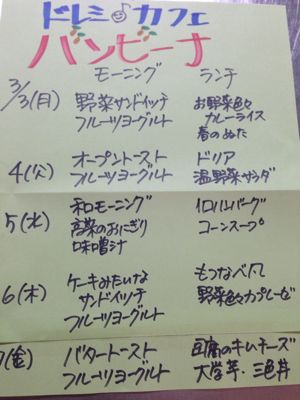 ドレミ♪カフェ
バンビーナ
モーニング ランチ
3/3(月) 野菜サンドイッチ お野菜色々
フルーツヨーグルト カレーライス
春のぬた
4(火) オープントースト ドリア
フルーツヨーグルト 温野菜サラダ
5(水) 和モーニング イロハハバーグ
高菜のおにぎり コーンスープ
味噌汁
6(木) ケーキみたいな もつなべ風
サンドイッチ 野菜色々カプレーゼ
フルーツヨーグルト
7(金) バタートースト 豆腐のキムチーズ
フルーツヨーグルト 大学芋・三色丼